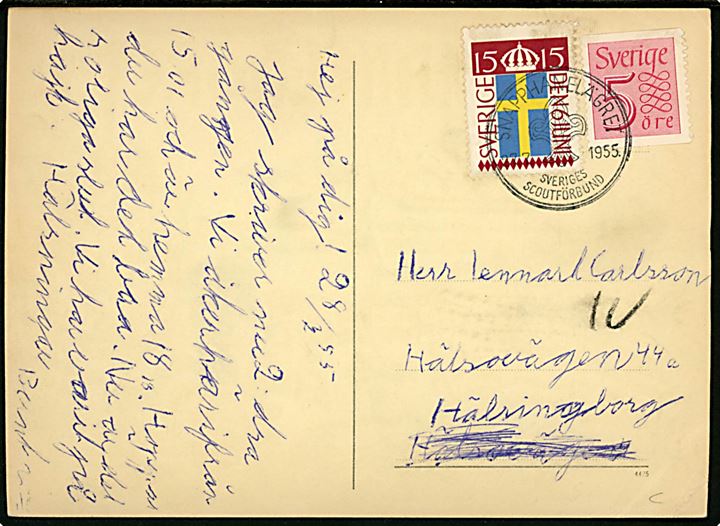 Hej på dig! 28/7 55.
Jag skriver nu 2:dra
gången. Vi åker härifrån
15.01 och är hemma 18 Hoppas
du har det bra. Nu är det
sorgaslut. Vi har varit på
hajk. Hälsningar
SVERIGE
15 15
DEN 6 JUNI
Sverige
5
öre
SNAPPHANELÄGRET
1955.
SVERIGES
SCOUTFÖRBUND
Herr Lennart Carlsson
Hälsovägen 44a
Hälsingborg